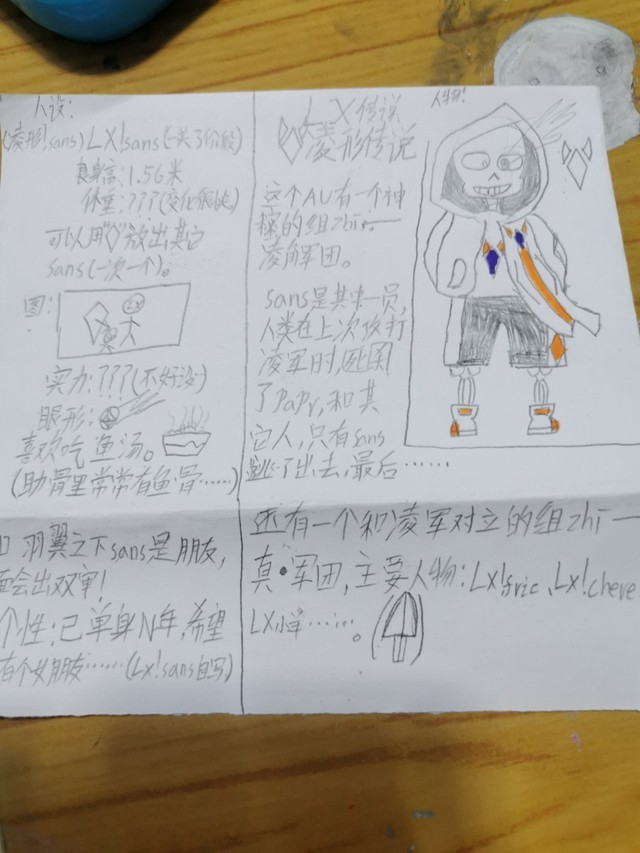 人设:
(凌形!sans) LX!sans
身高:1.56米
体重:???
可以用"◊"放出其它
sans(一次一个)。
图:
实力:???(不好说)
眼形:
喜欢吃鱼汤。
(助骨里常常有鱼骨……)
羽翼之下sans是朋友,
会出双审!
个性:已单身N年,希望
有个女朋友……(LX!sans自写)
LX传说
凌形传说
这个AU有一个神
秘的组zhi——
凌解军团。
sans是其中一员,
人类在上次攻打
凌军时,
了PaPy,和其
它人,只有sans
逃了出去,最后……
还有一个和凌军对立的组zhi——
真·军团,主要人物:LX!
LX!
人物: